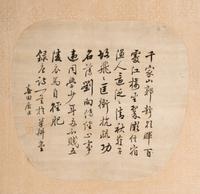 千家山郭靜朝暉百
處江樓坐翠微信宿
漁人還泛〻清秋燕子
故飛〻匡衡抗疏功
名薄劉向傳經心事
違同學少年多不賤五
陵衣馬自輕肥
錄唐詩一首於